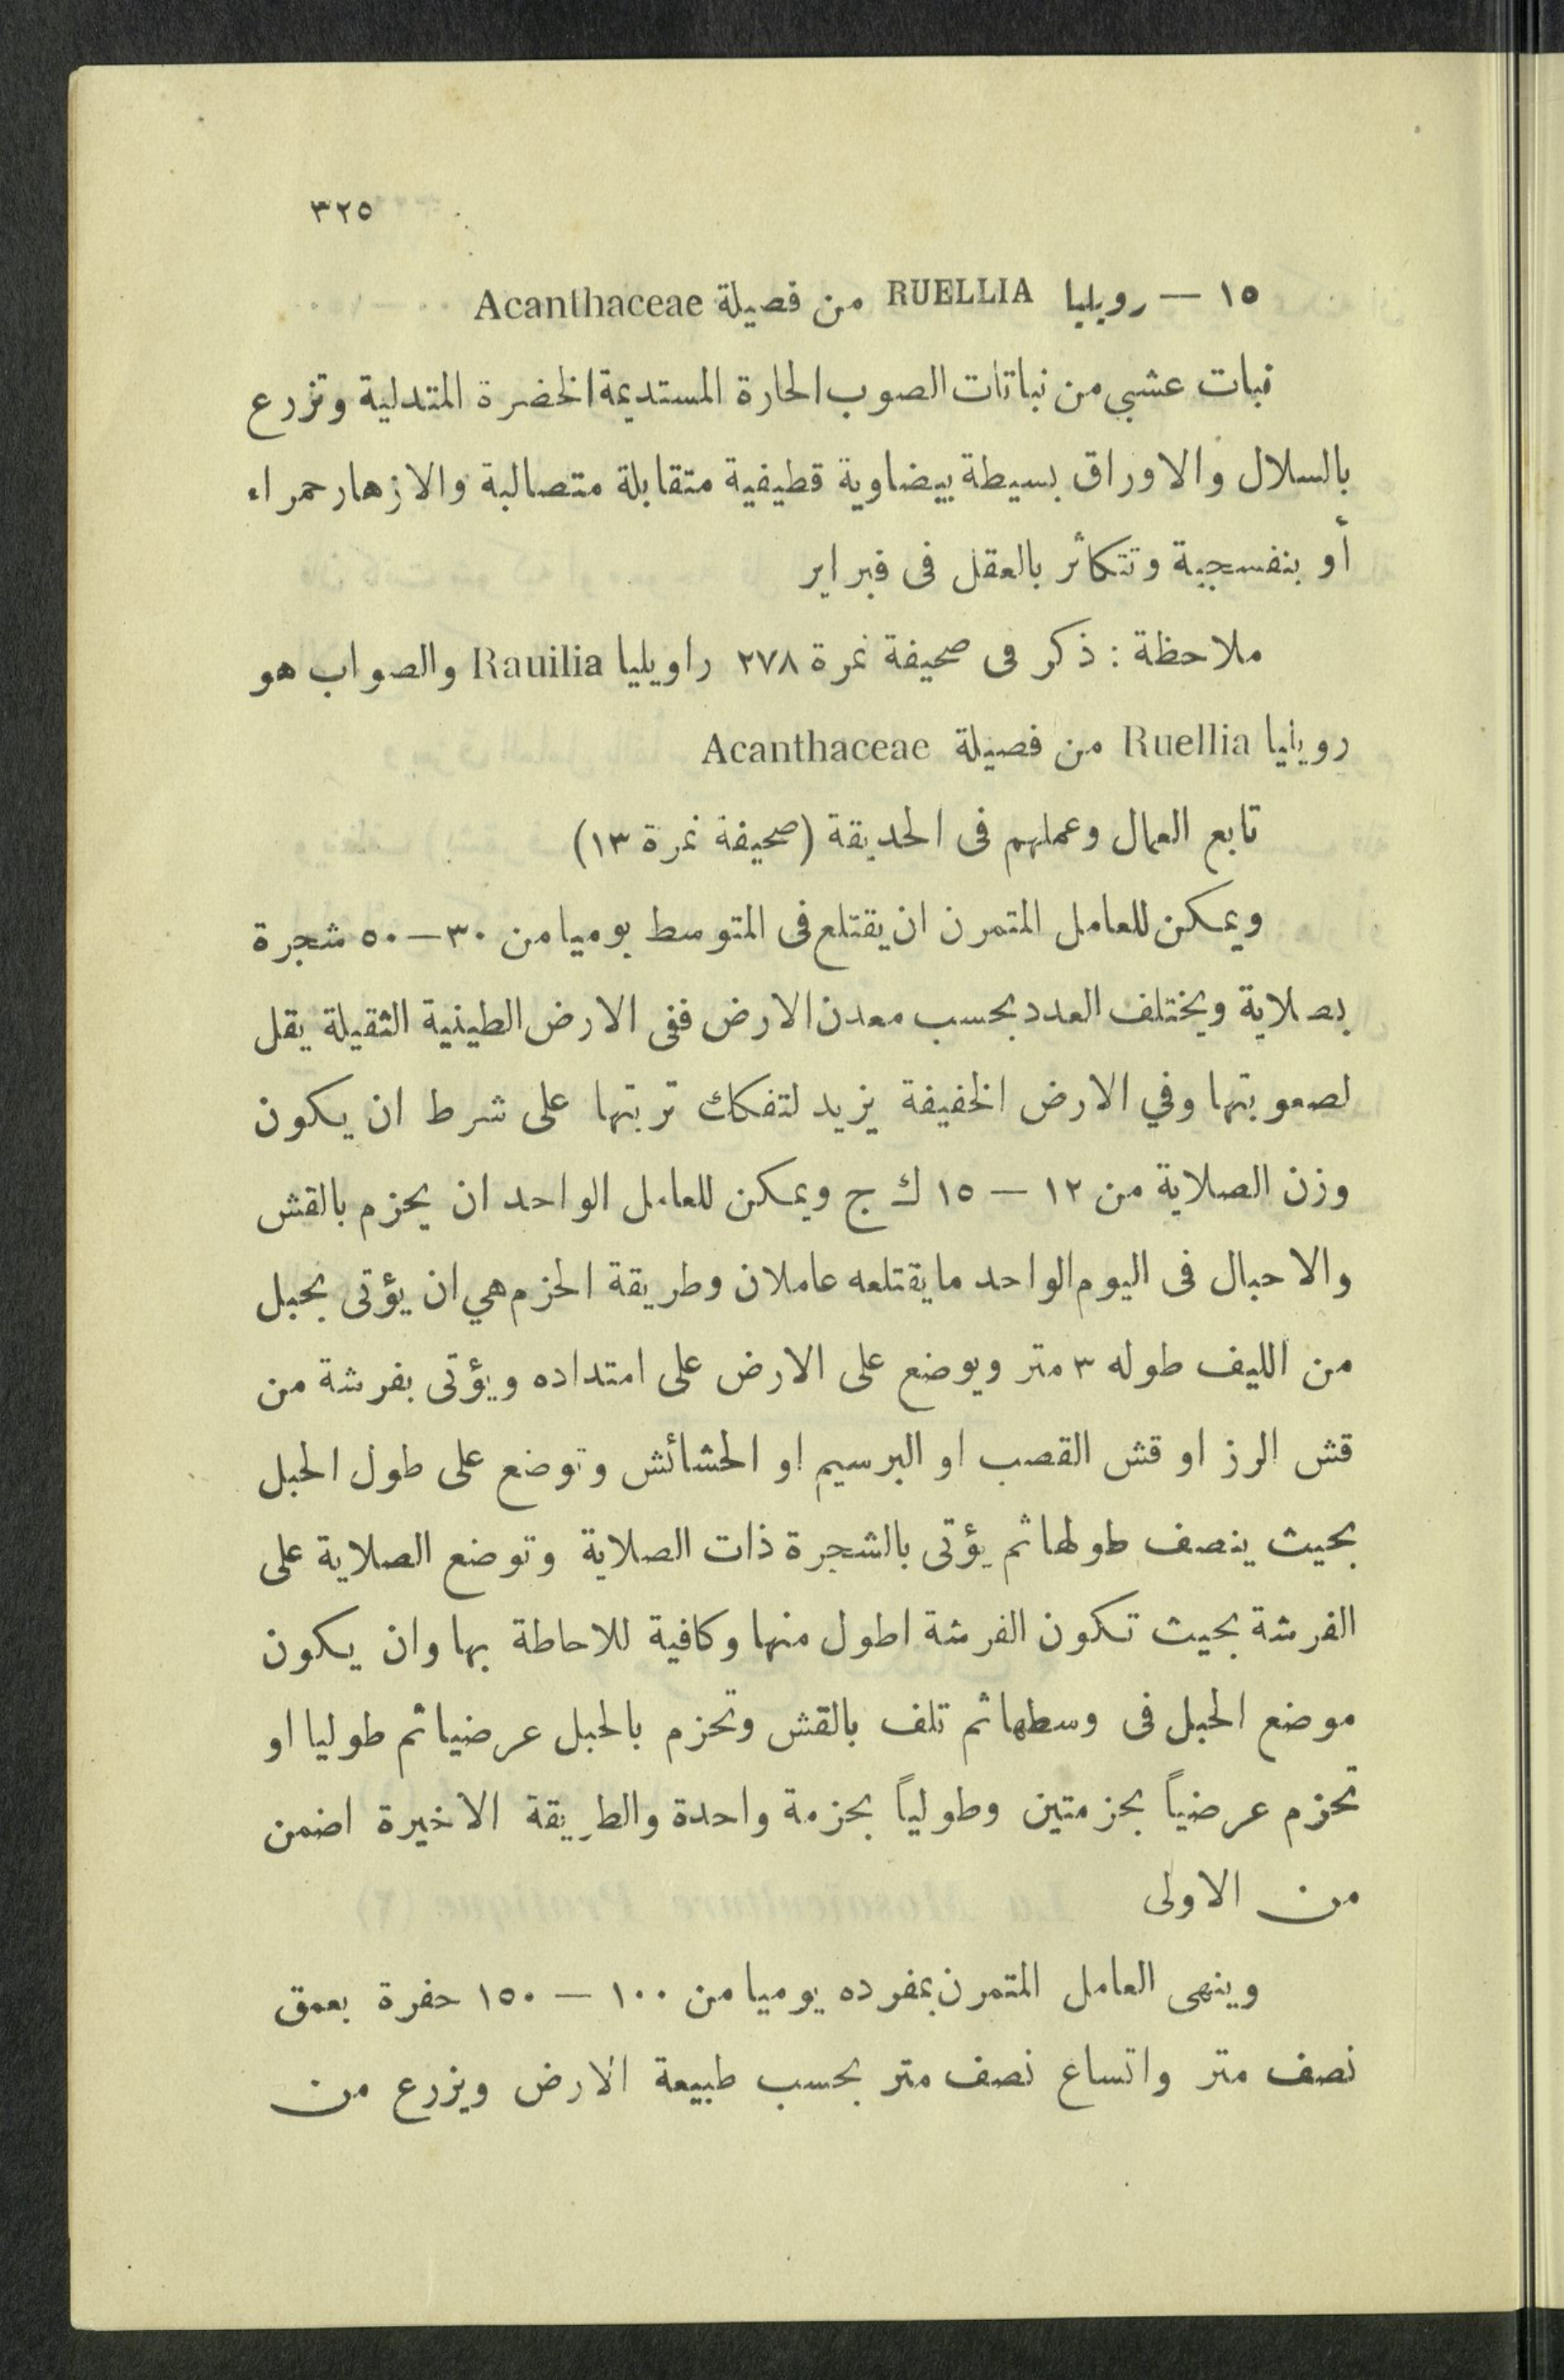 ٣٢٥
١٥ — رويليا RUELLIA من فصيلة Acanthaceae
نبات عشبي من نباتات الصوب الحارة المستديمة الخضرة المتدلية وتزرع
بالسلال والاوراق بسيطة بيضاوية قطيفية متقابلة متصالبة والازهار حمراء
أو بنفسجية وتتكاثر بالعقل فى فبراير
ملاحظة : ذكر فى صحيفة نمرة ٢٧٨ راويليا Rauilia والصواب هو
رويليا Ruellia من فصيلة Acanthaceae
تابع العمال وعملهم فى الحديقة (صحيفة نمرة ١٣)
ويمكن للعامل المتمرن ان يقتلع فى المتوسط يوميا من ٣٠—٥٠ شجرة
بصلاية ويختلف العدد بحسب معدن الارض ففى الارض الطينية الثقيلة يقل
لصعوبتها وفي الارض الخفيفة يزيد لتفكك تربتها على شرط ان يكون
وزن الصلاية من ١٢ — ١٥ ك ج ويمكن للعامل الواحد ان يحزم بالقش
والاحبال فى اليوم الواحد ما يقتلعه عاملان وطريقة الحزم هي ان يؤتى بحبل
من الليف طوله ٣ متر ويوضع على الارض على امتداده ويؤتى بفرشة من
قش الرز او قش القصب او البرسيم او الحشائش وتوضع على طول الحبل
بحيث ينصف طولها ثم يؤتى بالشجرة ذات الصلاية وتوضع الصلاية على
الفرشة بحيث تكون الفرشة اطول منها وكافية للاحاطة بها وان يكون
موضع الحبل فى وسطها ثم تلف بالقش وتحزم بالحبل عرضيا ثم طوليا او
تحزم عرضياً بحزمتين وطولياً بحزمة واحدة والطريقة الاخيرة اضمن
من الاولى
وينهى العامل المتمرن بمفرده يوميا من ١٠٠ — ١٥٠ حفرة بعمق
نصف متر واتساع نصف متر بحسب طبيعة الارض ويزرع من